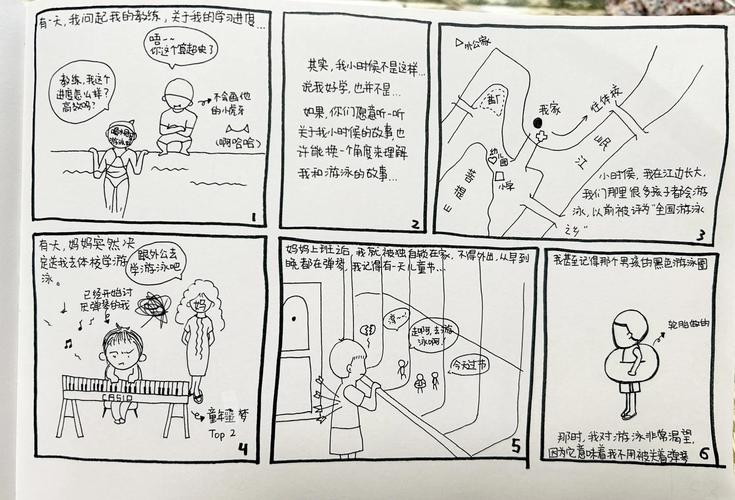 有一天，我问起我的教练，关于我的学习进度…
唔~~
你这个算超快了
教练，我这个
进度怎么样？
高效吗？
不会画他
的小虎牙
(啊哈哈)
1
其实，我小时候不是这样…
说我好学，也并不是…
如果，你们愿意听一听
关于我小时候的故事也
许能换一个角度来理解
我和游泳的故事…
2
我家
往体校
江
小学
小时候，我在江边长大，
我们那里很多孩子都会游
泳，以前被评为“全国游泳
之乡”
3
有天，妈妈突然决
定送我去体校学游
泳。
跟外公去
学游泳吧
妈
已经开始讨
厌弹琴的我
CASIO
童年噩梦
Top 2
4
妈妈上班后，我就被独自锁在家，不得外出，从早到
晚都在弹琴，我记得有一天儿童节…
起啊，去游
泳啊！
今天过节
5
我甚至记得那个男孩的黑色游泳圈
轮胎做的
那时，我对游泳非常渴望，
因为它意味着我不用被关着弹琴
6